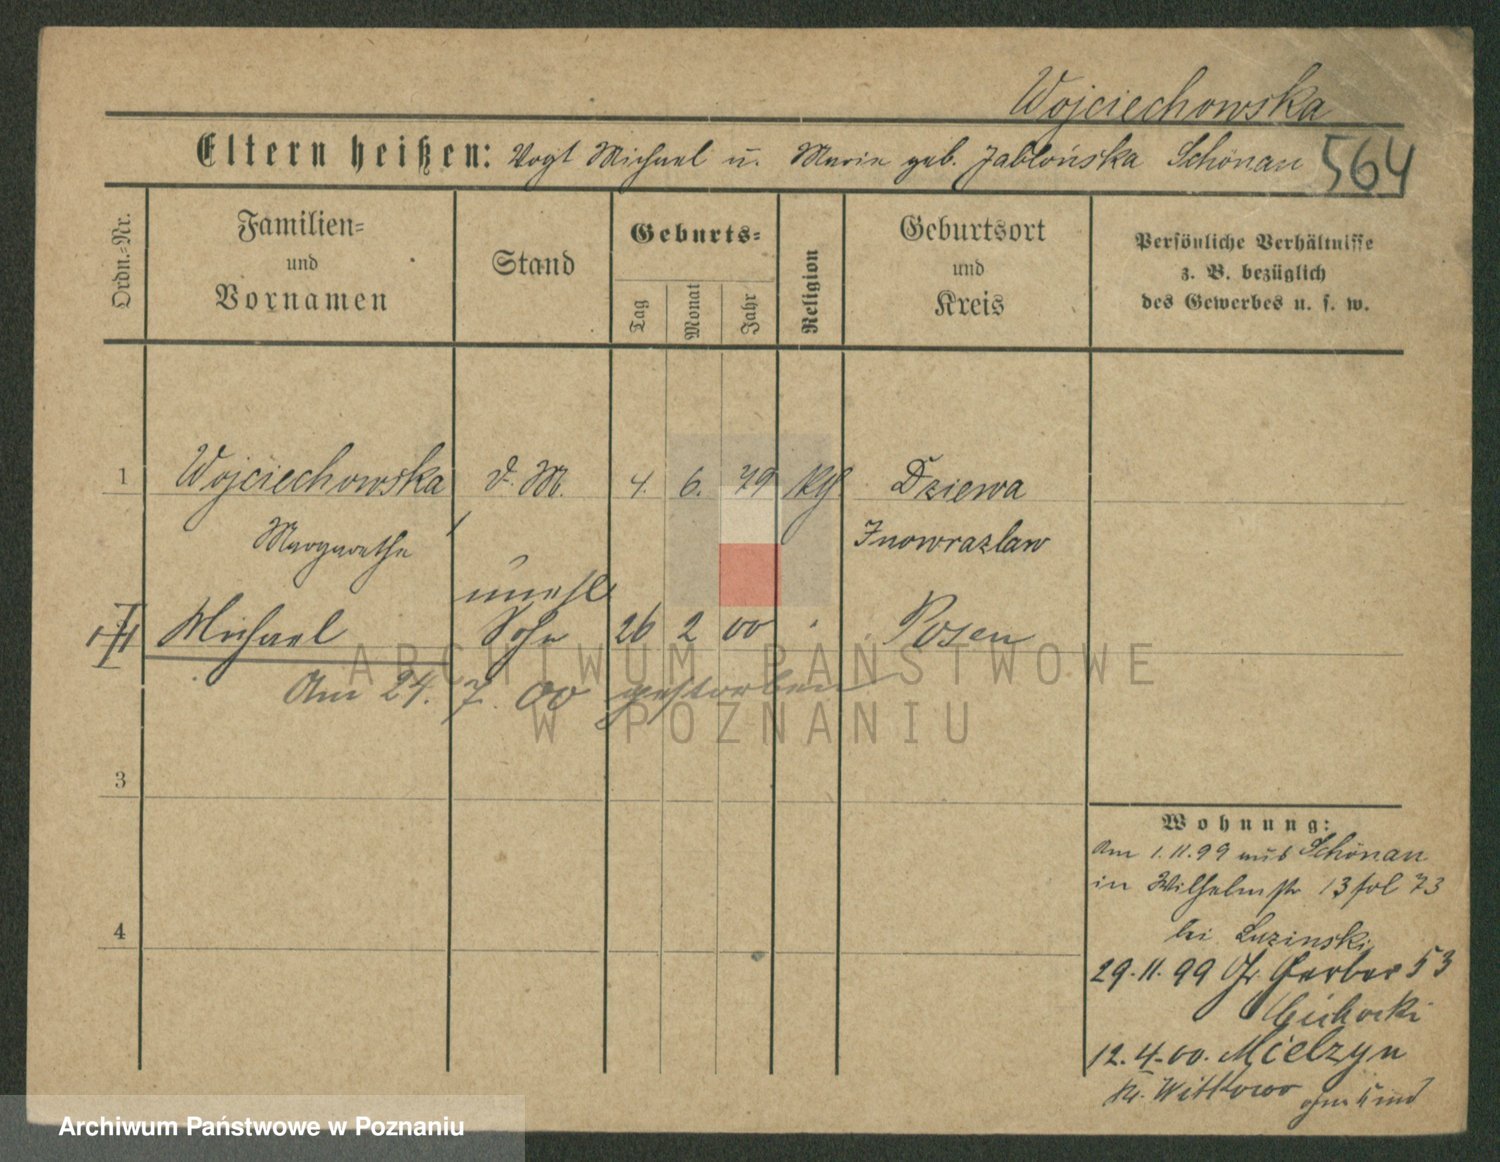 Wojciechowska
Eltern heißen: Vogt Michael u. Marie geb. Jabłońska Schönau 564
Ordn.=Nr.
Familien=
und
Vornamen
Stand
Geburts=
Tag
Monat
Jahr
Religion
Geburtsort
und
Kreis
Persönliche Verhältnisse
z. B. bezüglich
des Gewerbes u. s. w.
1 Wojciechowska d. M. 4. 6. 79 Dziewa
Margarethe Inowrazlaw
unehl
Michael Sohn 26 2 00 Posen
Am 24. 7. 00 gestorben
3
4
Wohnung:
Am 1.11.99 aus Schönau
in Wilhelmstr 13 fol 73
bei Luzinski
29.11.99 Gr. Gerber 53
Cichocki
12.4.00. Mielzyn
Kr. Witkowo ohne Kind
ARCHIWUM PAŃSTWOWE
W POZNANIU
Archiwum Państwowe w Poznaniu